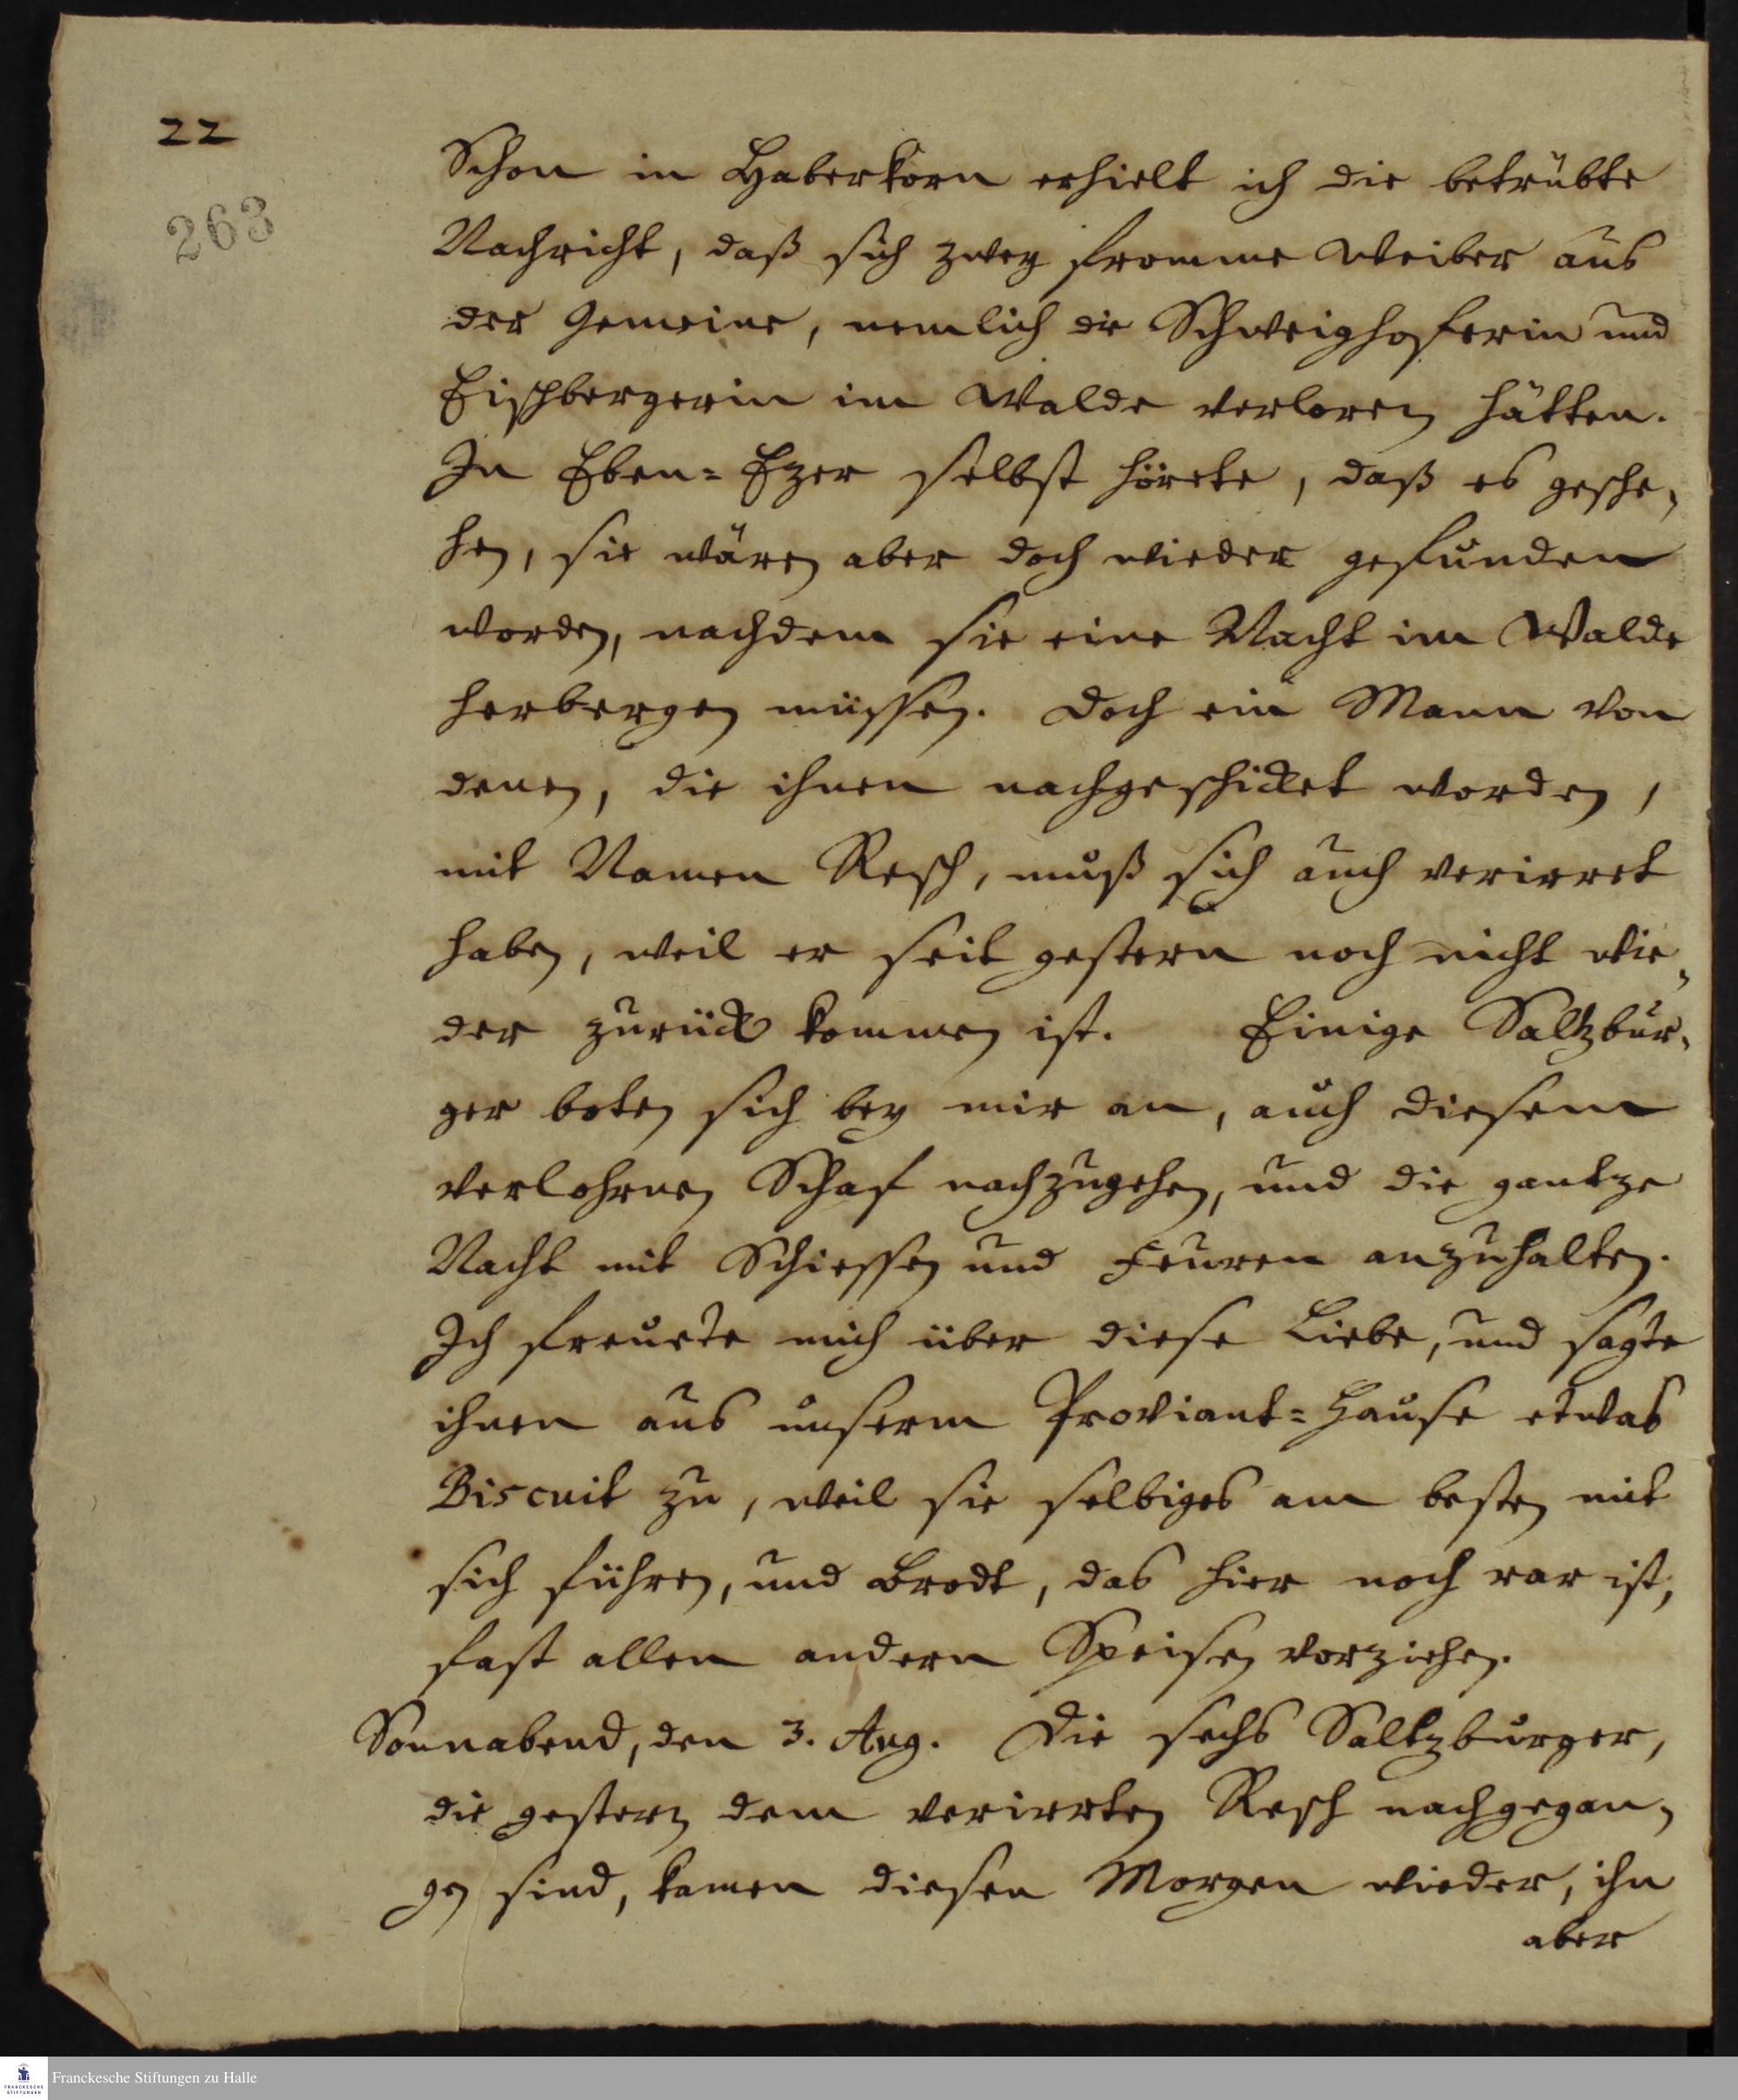 22
263
Schon in Haberkorn erhielt ich die betrübte
Nachricht, daß sich zwey fromme Weiber aus
der Gemeine, nemlich die Schweighoferin und
Eischbergerin im Walde verloren hätten.
In Eben-Ezer selbst hörete, daß es gesche-
hen, sie wären aber doch wieder gefunden
worden, nachdem sie eine Nacht im Walde
herbergen müssen. Doch ein Mann von
denen, die ihnen nachgeschicket worden,
mit Namen Resch, muß sich auch verirret
haben, weil er seit gestern noch nicht wie-
der zurück kommen ist. Einige Saltzbur-
ger boten sich bey mir an, auch diesem
verlohrnen Schaf nachzugehen, und die gantze
Nacht mit Schiessen und Feuren anzuhalten.
Ich freuete mich über diese Liebe, und sagte
ihnen aus unserm Proviant-Hause etwas
Biscuit zu, weil sie selbiges am besten mit
sich führen, und Brodt, das hier noch rar ist,
fast allen andern Speisen vorziehen.
Sonnabend, den 3. Aug. Die sechs Saltzburger,
die gestern dem verirrten Resch nachgegan-
gen sind, kamen diesen Morgen wieder, ihn
aber
FRANCKESCHE STIFTUNGEN
Franckesche Stiftungen zu Halle